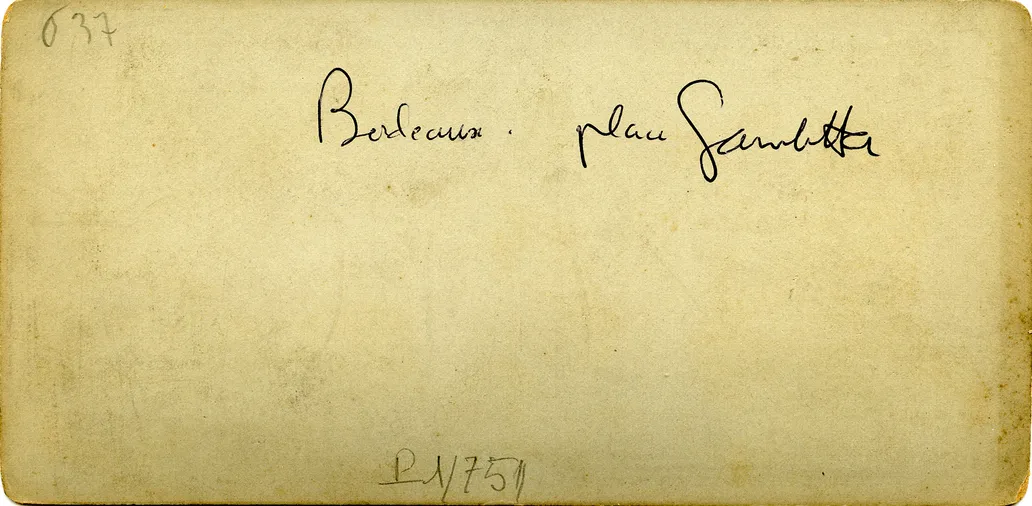 637
Bordeaux. place Gambetta